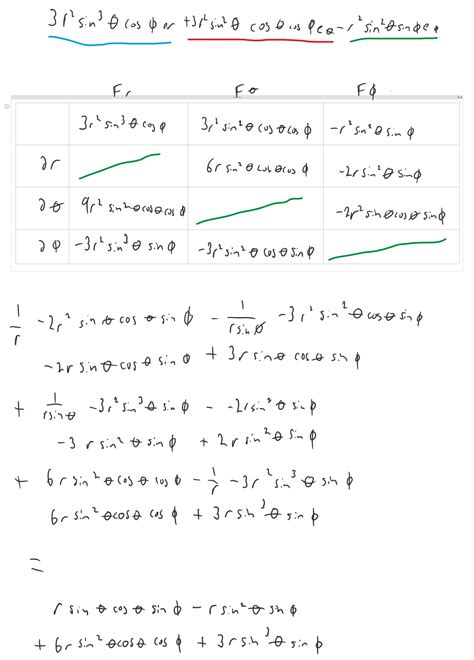 3r² sin³ θ cos ϕ er + 3r² sin² θ cos θ cos ϕ eθ - r² sin² θ sin ϕ eϕ
Fr Fθ Fϕ
3r² sin³ θ cos ϕ 3r² sin² θ cos θ cos ϕ -r² sin² θ sin ϕ
∂r 6r sin² θ cos θ cos ϕ -2r sin² θ sin ϕ
∂θ 9r² sin² θ cos θ cos ϕ -2r² sin θ cos θ sin ϕ
∂ϕ -3r² sin³ θ sin ϕ -3r² sin² θ cos θ sin ϕ
1/r -2r² sin θ cos θ sin ϕ - 1/(r sin ϕ) -3r² sin² θ cos θ sin ϕ
-2r sin θ cos θ sin θ + 3r sin θ cos θ sin ϕ
+ 1/(r sin θ) -3r² sin³ θ sin ϕ - -2r sin² θ sin ϕ
-3 r sin² θ sin ϕ + 2r sin² θ sin ϕ
+ 6r sin² θ cos θ cos ϕ - 1/r -3r² sin³ θ sin ϕ
6r sin² θ cos θ cos ϕ + 3r sin³ θ sin ϕ
=
r sin θ cos θ sin ϕ - r sin² θ sin ϕ
+ 6r sin² θ cos θ cos ϕ + 3r sin³ θ sin ϕ